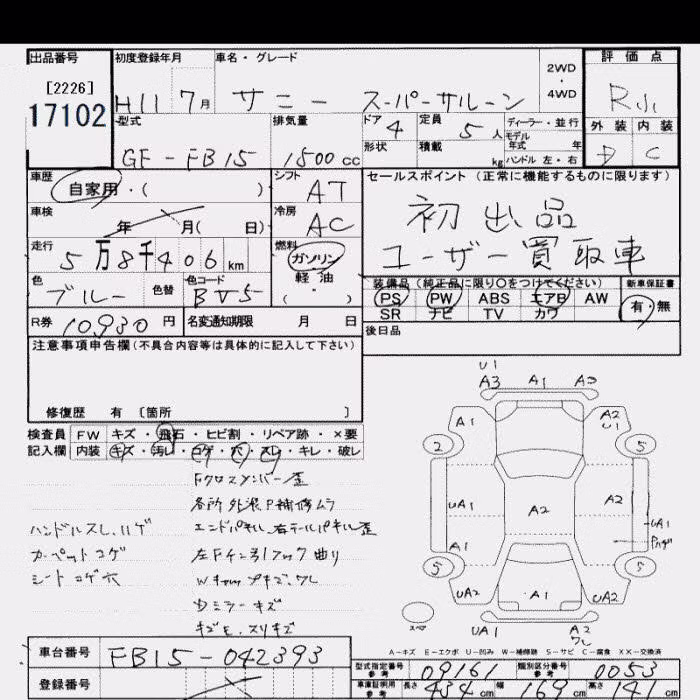 出品番号
[2226]
17102
初度登録年月
H11 7月
車名・グレード
サニー スーパーサルーン
2WD
・
4WD
評価点
R
外装 内装
D C
型式
GF-FB15
排気量
1500cc
ドア
4
定員
5人
形状
積載
kg
ディーラー・並行
モデル年式 年
ハンドル 左・右
車歴
自家用・( )
車検
年 月( 日)
走行
5万8千406km
色
ブルー
色替
色コード
BV5
シフト
AT
冷房
AC
燃料
ガソリン
・
軽油
( ・ )
セールスポイント(正常に機能するものに限ります)
初出品
ユーザー買取車
装備品(純正品に限り○をつけてください)
PS PW ABS エアB AW
SR ナビ TV カワ
新車保証書
有・無
R券 10,930円
名変通知期限 月 日
後日品
注意事項申告欄(不具合内容等は具体的に記入して下さい)
修復歴 有 〔箇所 〕
検査員記入欄
FW キズ・飛石・ヒビ割・リペア跡・×要
内装 キズ・汚レ・コゲ・穴・スレ・キレ・破レ
Fクロスメンバー歪
各所外装P補修ムラ
ハンドルスレ、ハゲ
エンドパネル、右テールパネル歪
カーペットコゲ
シートコゲ穴
左ミラーキズ
U1
A3 A1
A1
A2
U1
2 5
UA1
A2
A2
UA1
A1
5 5
UA2
A1
UA2
スペア
UA1
A2
ワレ
A-キズ E-エクボ U-凹み W-補修跡 S-サビ C-腐食 XX-交換済
車台番号
FB15-042393
登録番号
型式指定番号
参考
09161
類別区分番号
参考
0053
車庫証明用
参考
長さ 434cm 幅 169cm 高さ 141cm